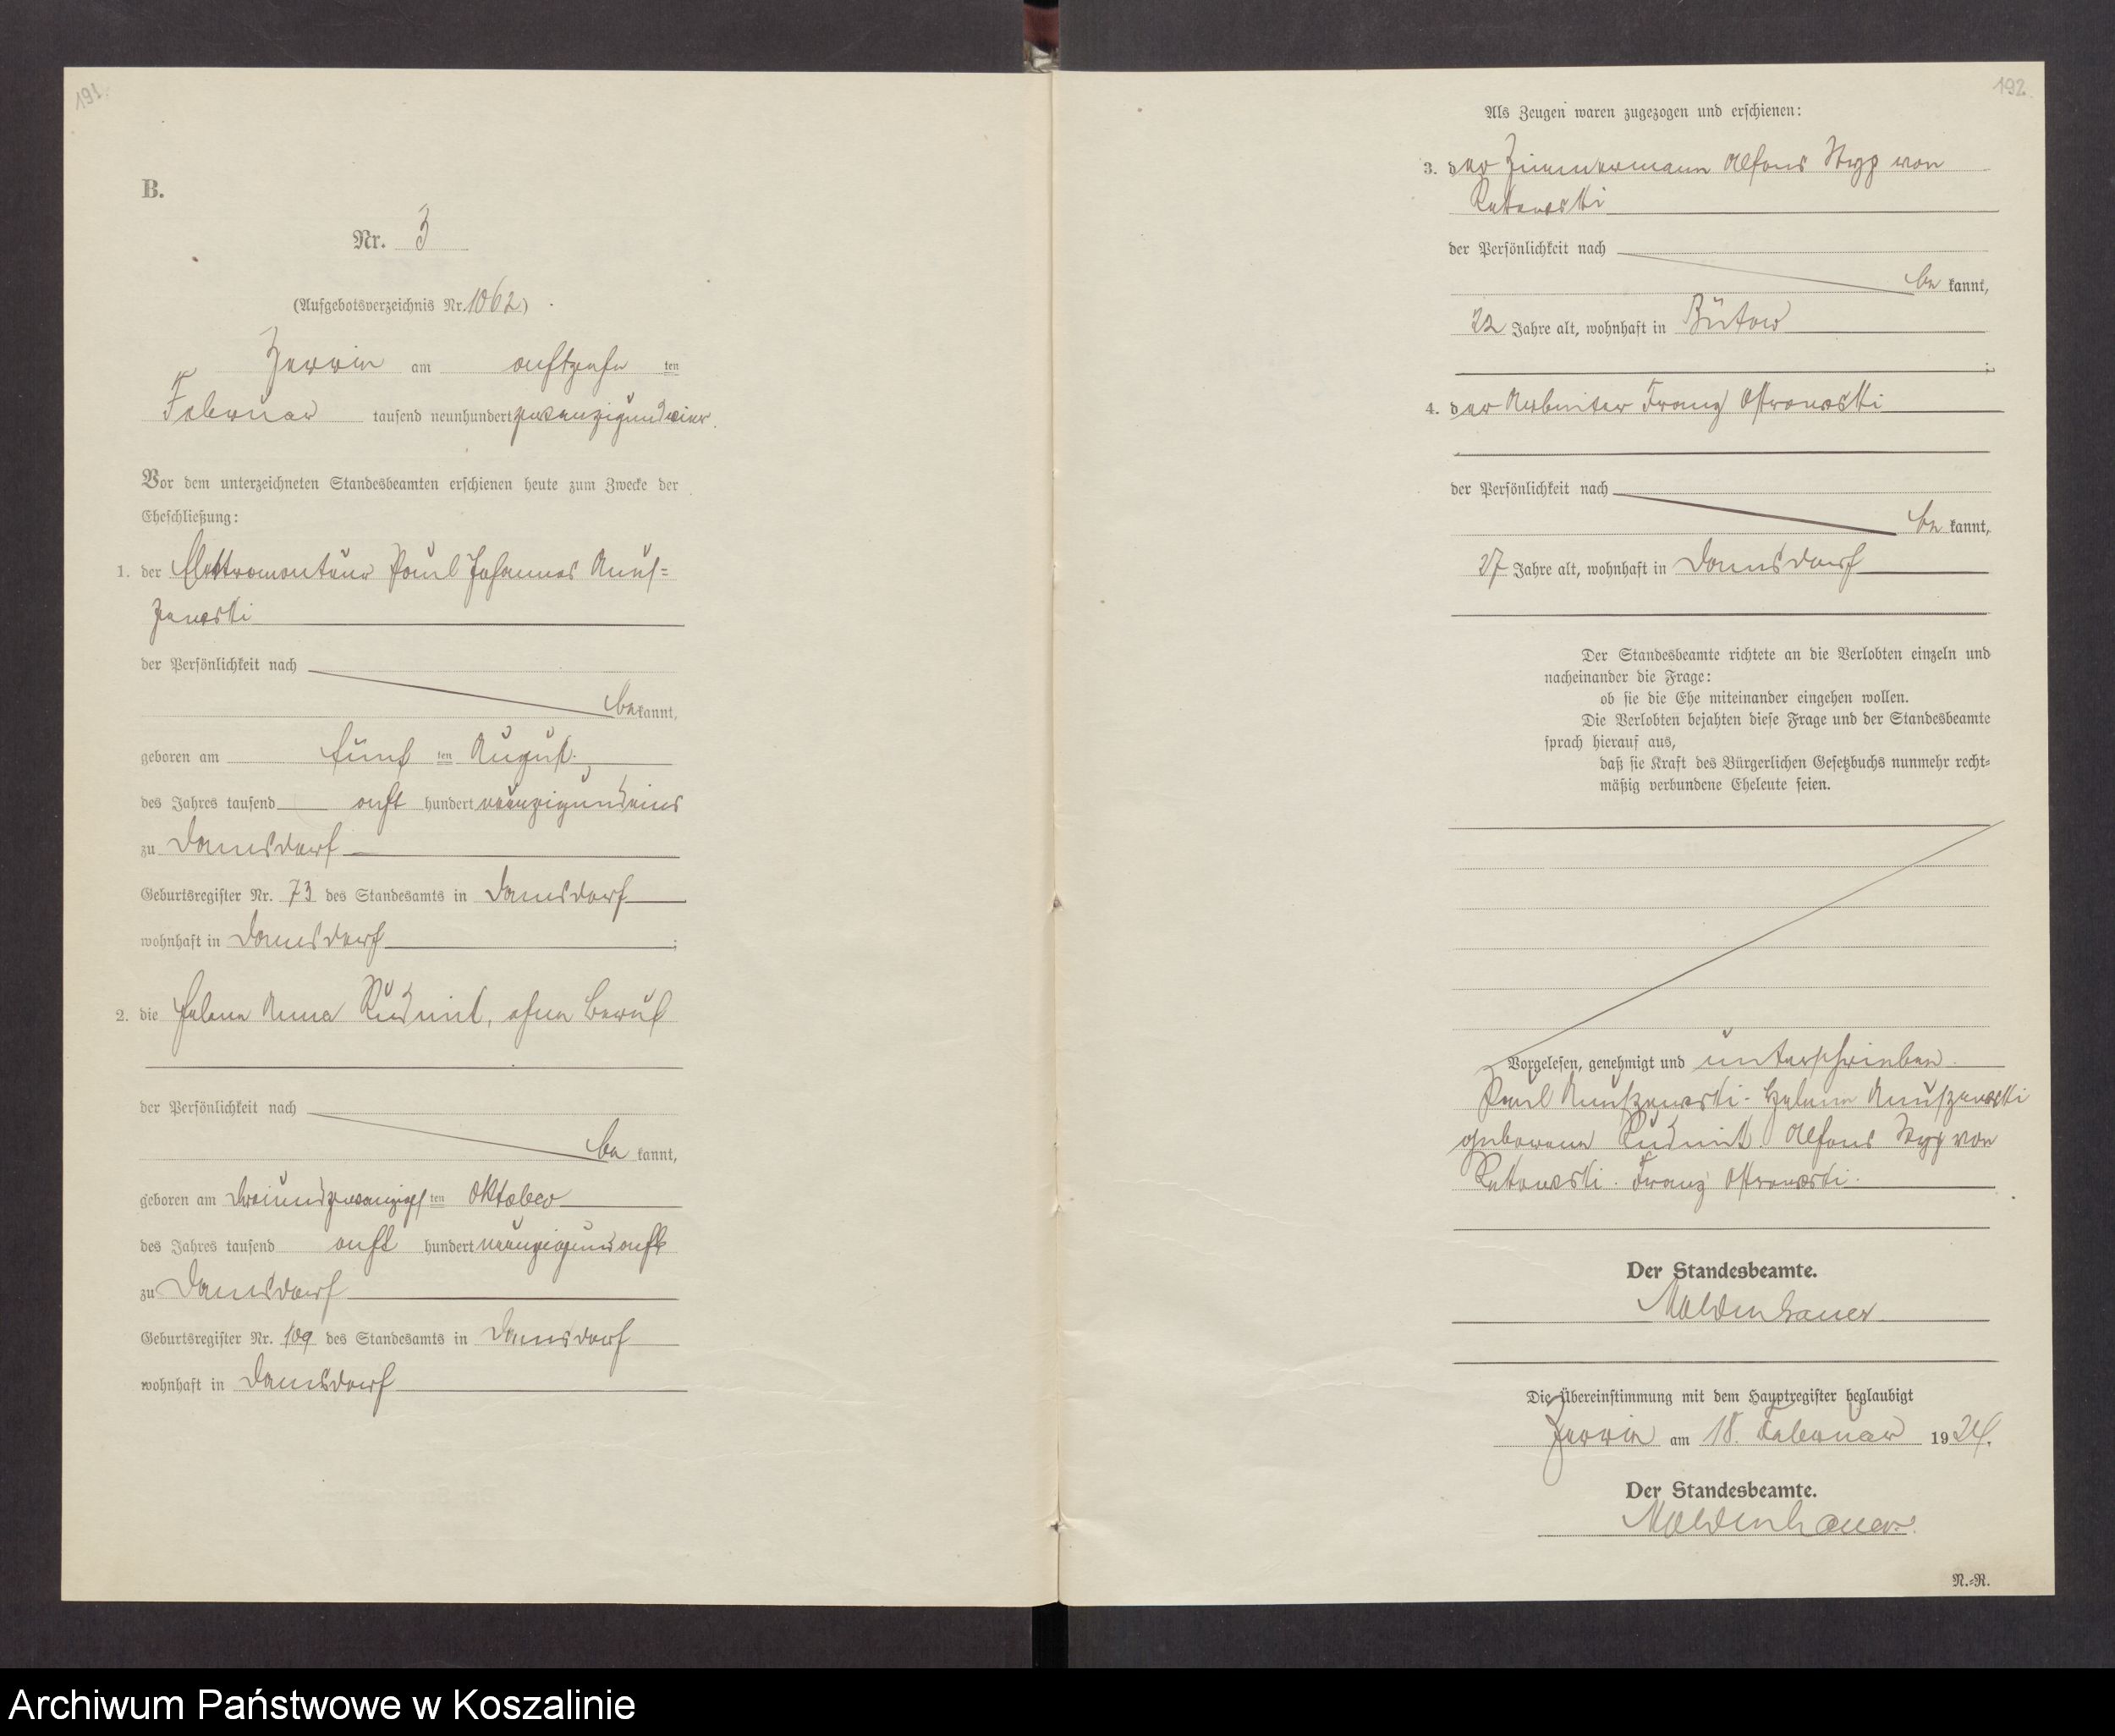 191.
B.
Nr. 3
(Aufgebotsverzeichnis Nr. 1062)
Zerrin am achtzehn ten
Februar tausend neunhundert zwanzigundvier.
Vor dem unterzeichneten Standesbeamten erschienen heute zum Zwecke der
Eheschließung:
1. der Elektromonteur Paul Johannes
der Persönlichkeit nach
bekannt,
geboren am fünf ten August
des Jahres tausend acht hundert neunzigundeins
zu Damsdorf
Geburtsregister Nr. 73 des Standesamts in Damsdorf
wohnhaft in Damsdorf ;
2. die Helene Anna Rudnik, ohne Beruf
der Persönlichkeit nach
be kannt,
geboren am dreiundzwanzigs ten Oktober
des Jahres tausend acht hundert neunzigundacht
zu Damsdorf
Geburtsregister Nr. 109 des Standesamts in Damsdorf
wohnhaft in Damsdorf
192.
Als Zeugen waren zugezogen und erschienen:
3. der Zimmermann Alfons Styp von
Rekowski
der Persönlichkeit nach
be kannt,
22 Jahre alt, wohnhaft in Bütow
;
4. der Arbeiter Franz Ostrowski
der Persönlichkeit nach
be kannt,
27 Jahre alt, wohnhaft in Damsdorf
Der Standesbeamte richtete an die Verlobten einzeln und
nacheinander die Frage:
ob sie die Ehe miteinander eingehen wollen.
Die Verlobten bejahten diese Frage und der Standesbeamte
sprach hierauf aus,
daß sie Kraft des Bürgerlichen Gesetzbuchs nunmehr recht-
mäßig verbundene Eheleute seien.
Vorgelesen, genehmigt und unterschrieben.
Paul Helene
geborene Rudnik. Alfons Styp von
Rekowski. Franz Ostrowski.
Der Standesbeamte.
Moldenhauer
Die Übereinstimmung mit dem Hauptregister beglaubigt
Zerrin am 18. Februar 1924.
Der Standesbeamte.
Moldenhauer.
N.-R.
Archiwum Państwowe w Koszalinie